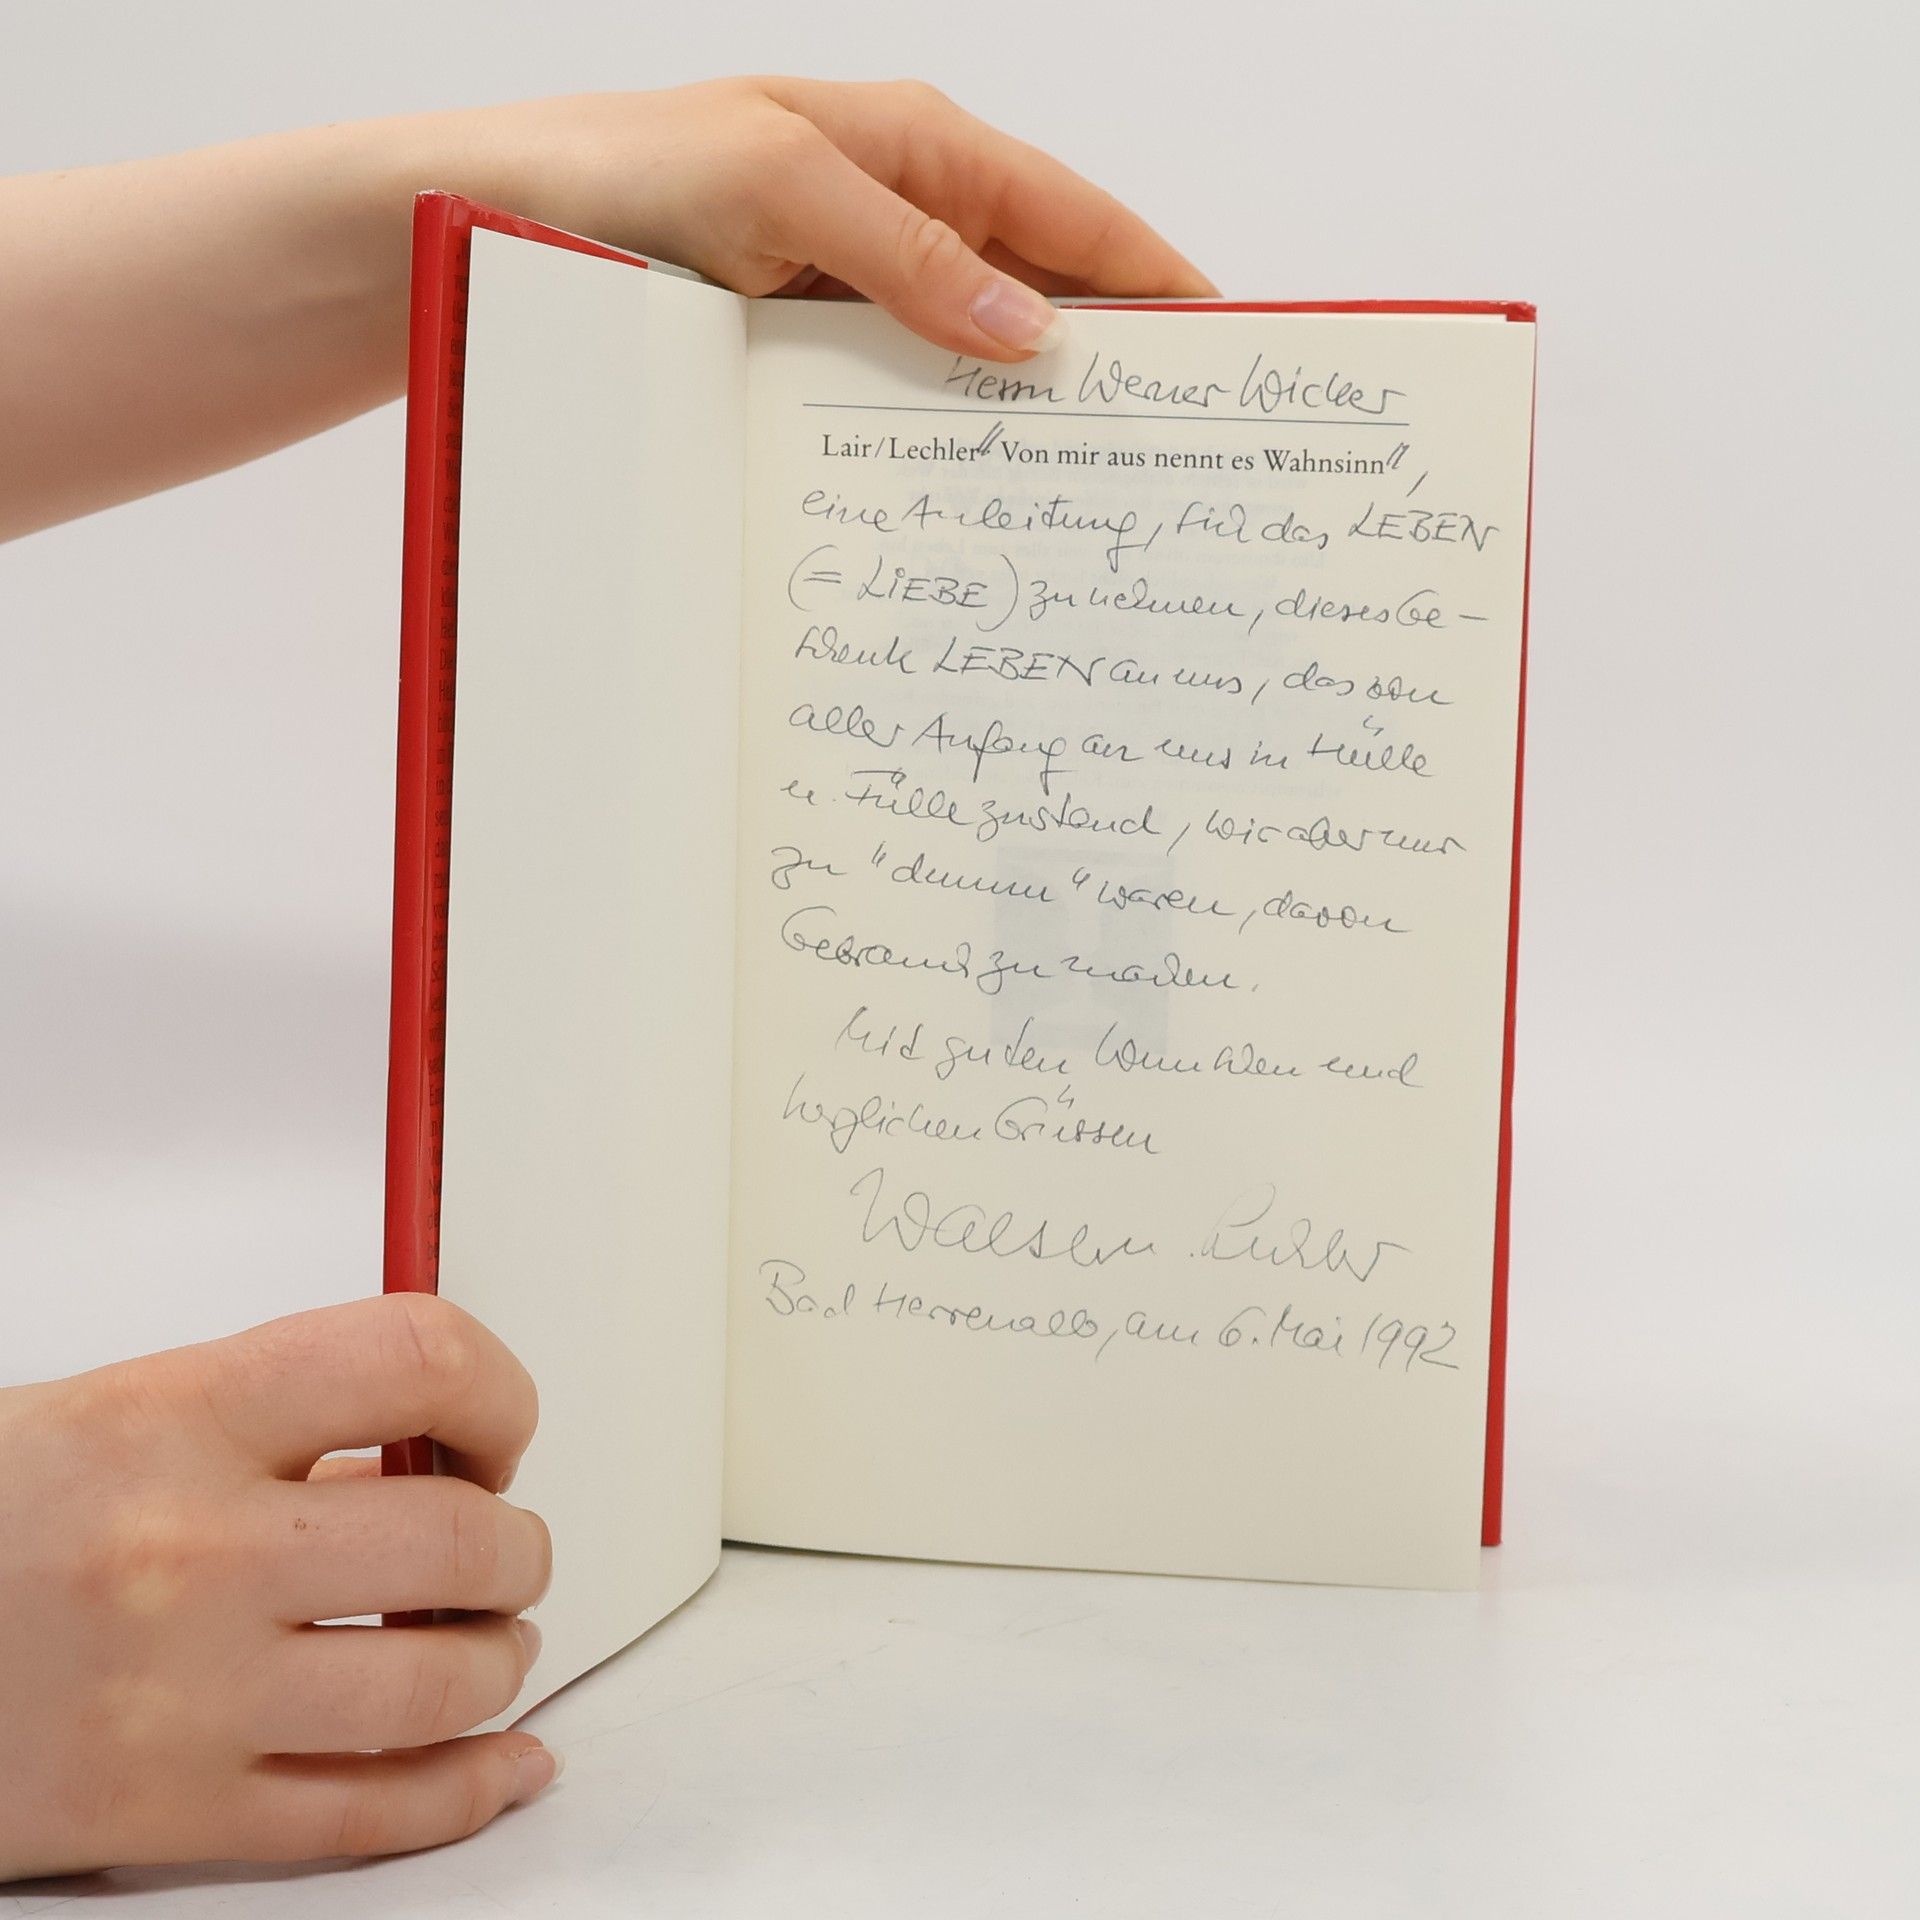 Herrn Werner Wicker
Lair/Lechler " Von mir aus nennt es Wahnsinn",
eine Anleitung, sich das LEBEN
(= LiEBE) zu nehmen, dieses Ge-
schenk LEBEN an uns, das von
aller Anfang an uns in Hülle
u. Fülle zustand, wir aber nur
zu "dumm" waren, davon
Gebrauch zu machen.
Mit guten Wünschen und
herzlichen Grüssen
Walther Lechler
Bad Herrenalb, am 6. Mai 1992